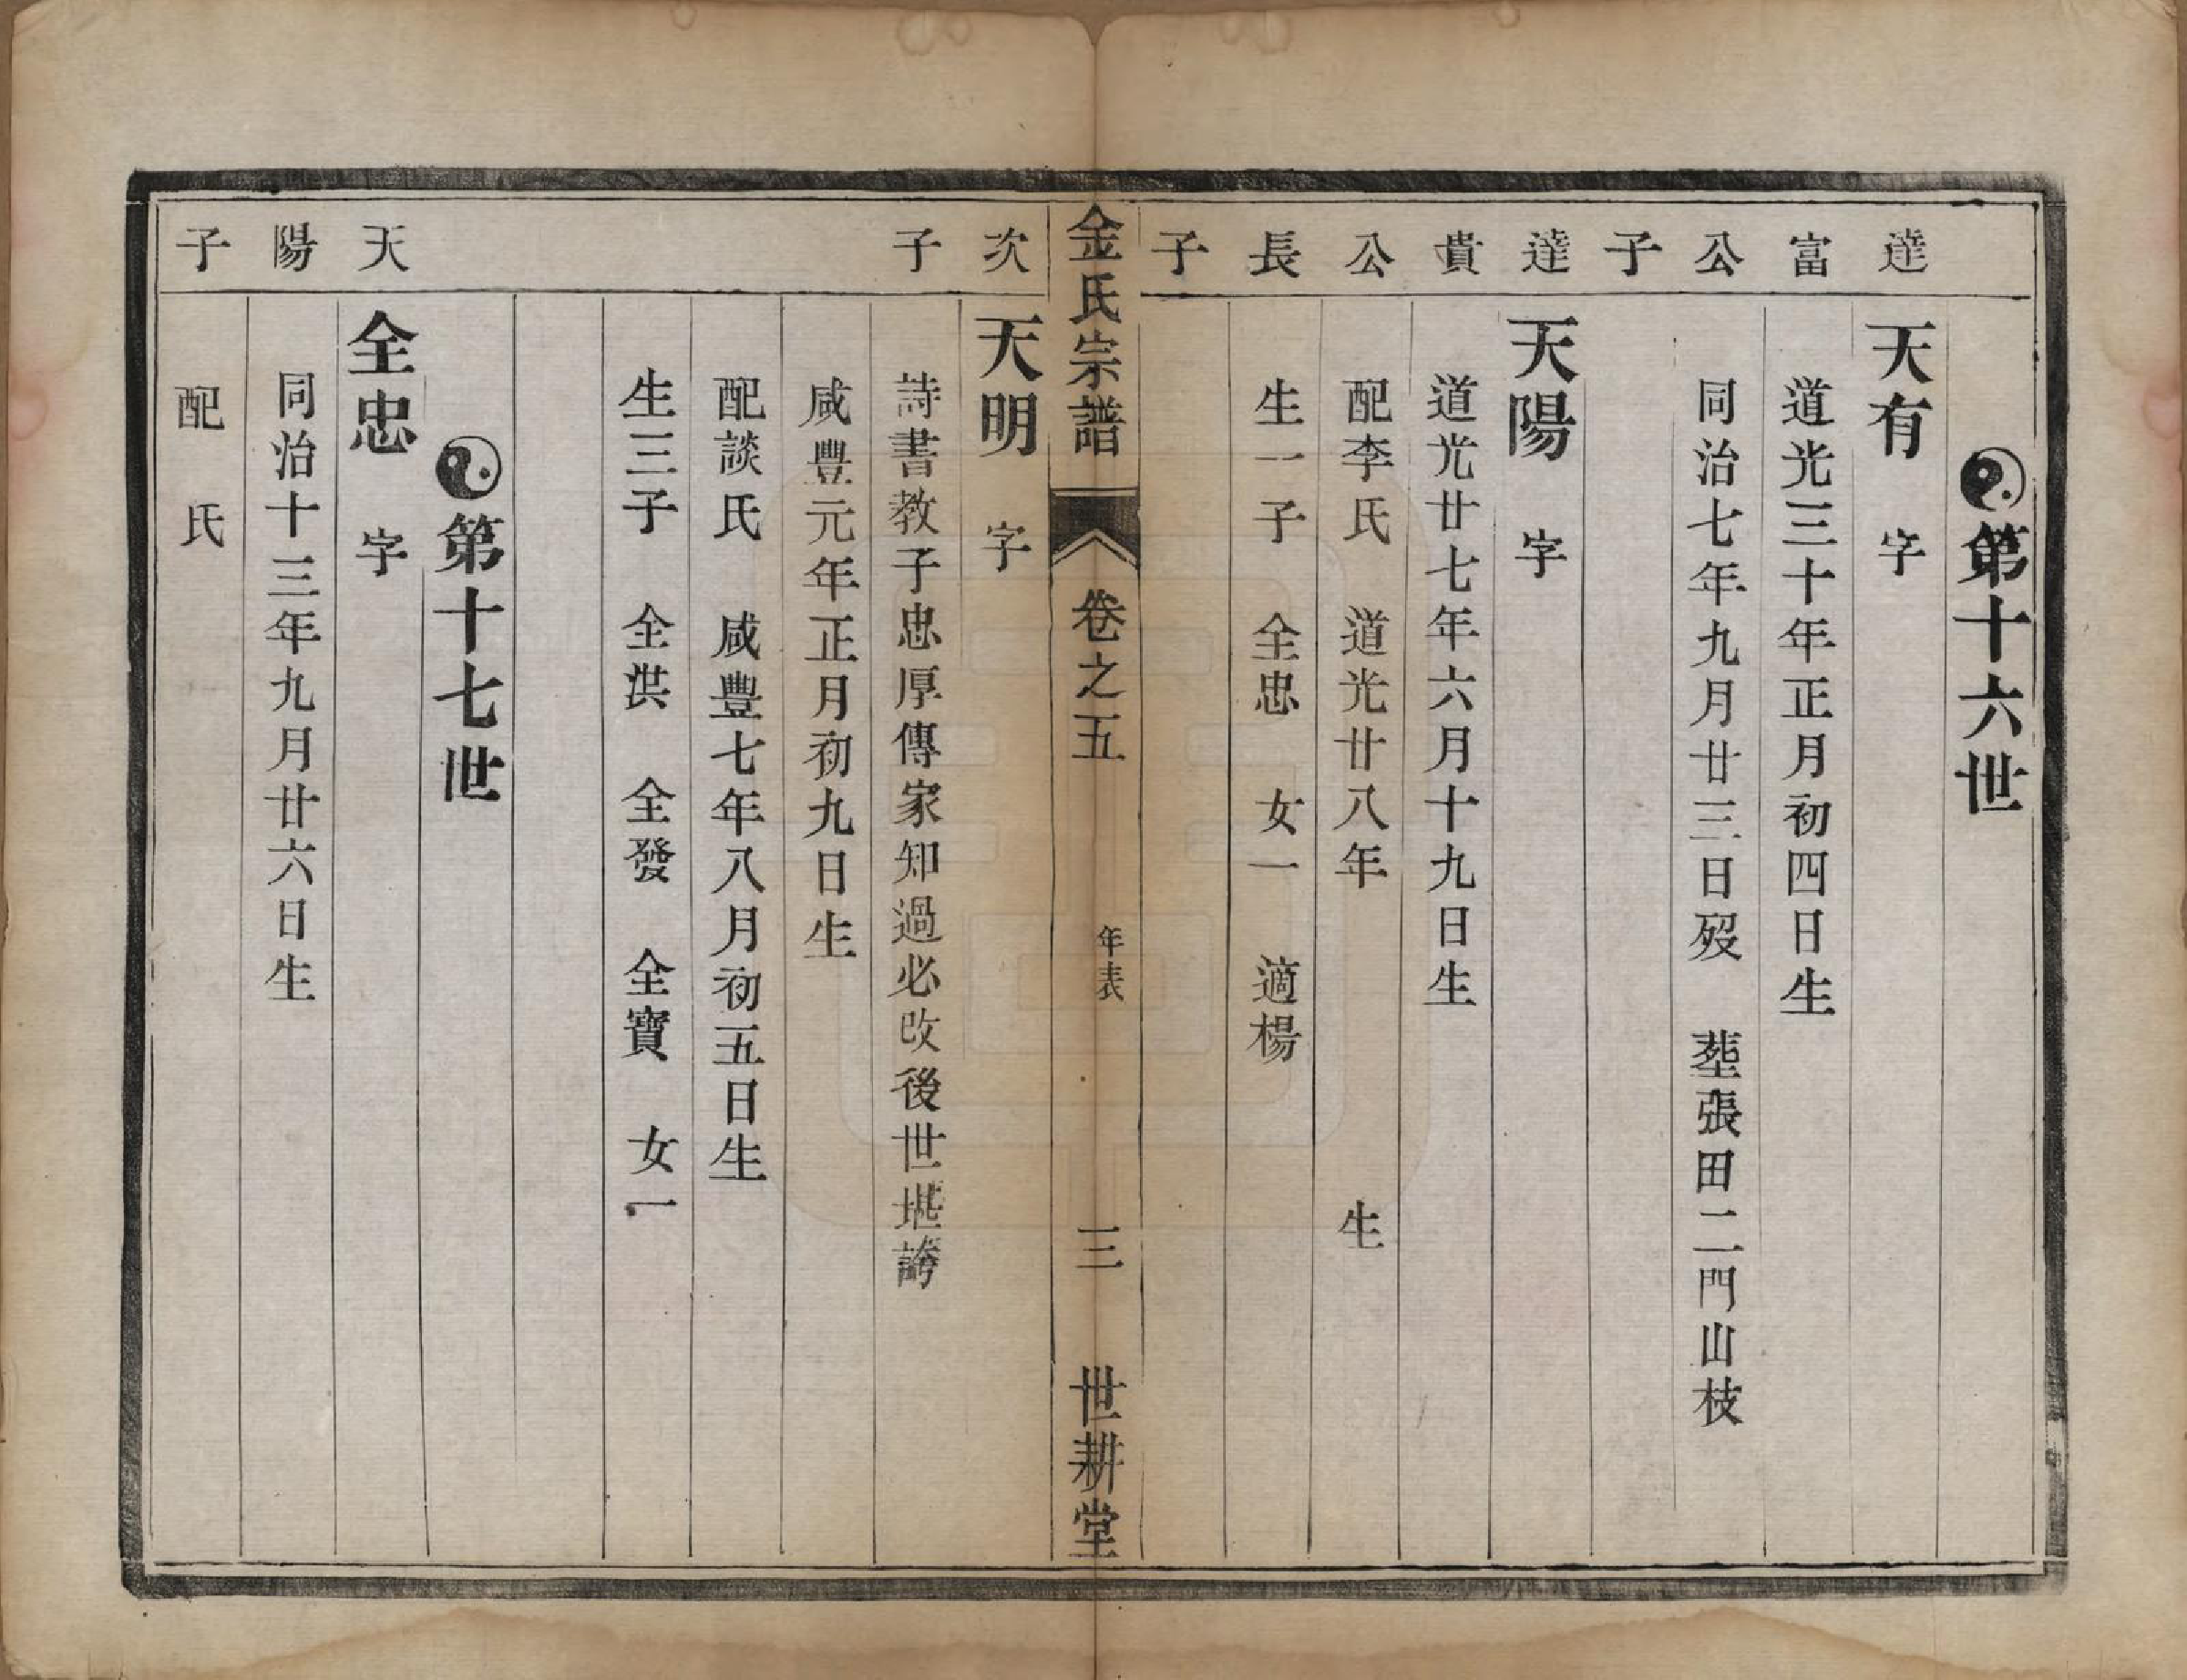 第十六世
達富公子
天有 字
道光三十年正月初四日生
同治七年九月廿三日歿 塟張田二門山枝
達貴公長子
天陽 字
道光廿七年六月十九日生
配李氏 道光廿八年 生
生一子 全忠 女一 適楊
金氏宗譜 卷之五 年表 三 世耕堂
次子
天明 字
詩書教子忠厚傳家知過必改後世堪誇
咸豐元年正月初九日生
配談氏 咸豐七年八月初五日生
生三子 全洪 全發 全寶 女一
第十七世
天陽子
全忠 字
同治十三年九月廿六日生
配 氏